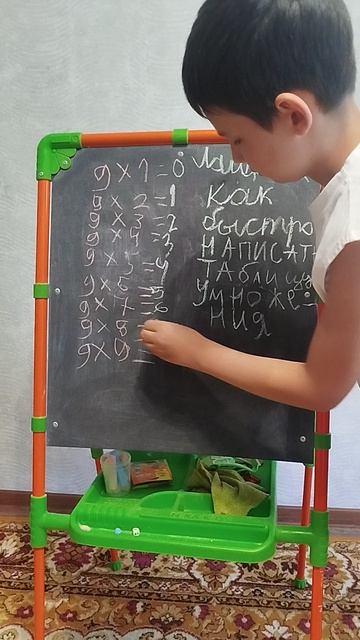 9×1=0
9×2=1
9×3=2
9×4=3
9×5=4
9×6=5
9×7=6
9×8=
9×9=
Как
быстро
НАПИСАТ
Таблицу
умноже-
ния